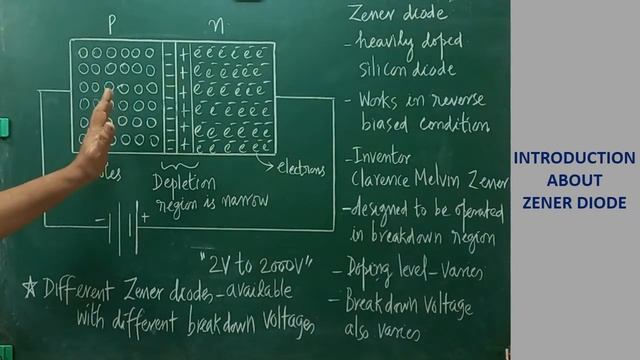 P n
- + e e e e e e
- + e e e e e e
- + e e e e e e
- + e e e e e e
- + e e e e e e
- + e e e e e e
electrons
Depletion
region is narrow
- +
"2V to 2000V"
☆ Different Zener diodes - available
with different breakdown voltages
Zener diode
- heavily doped
silicon diode
- Works in reverse
biased condition
- Inventor
Clarence Melvin Zener
- designed to be operated
in breakdown region
- Doping level - varies
- Breakdown voltage
also varies
INTRODUCTION
ABOUT
ZENER DIODE